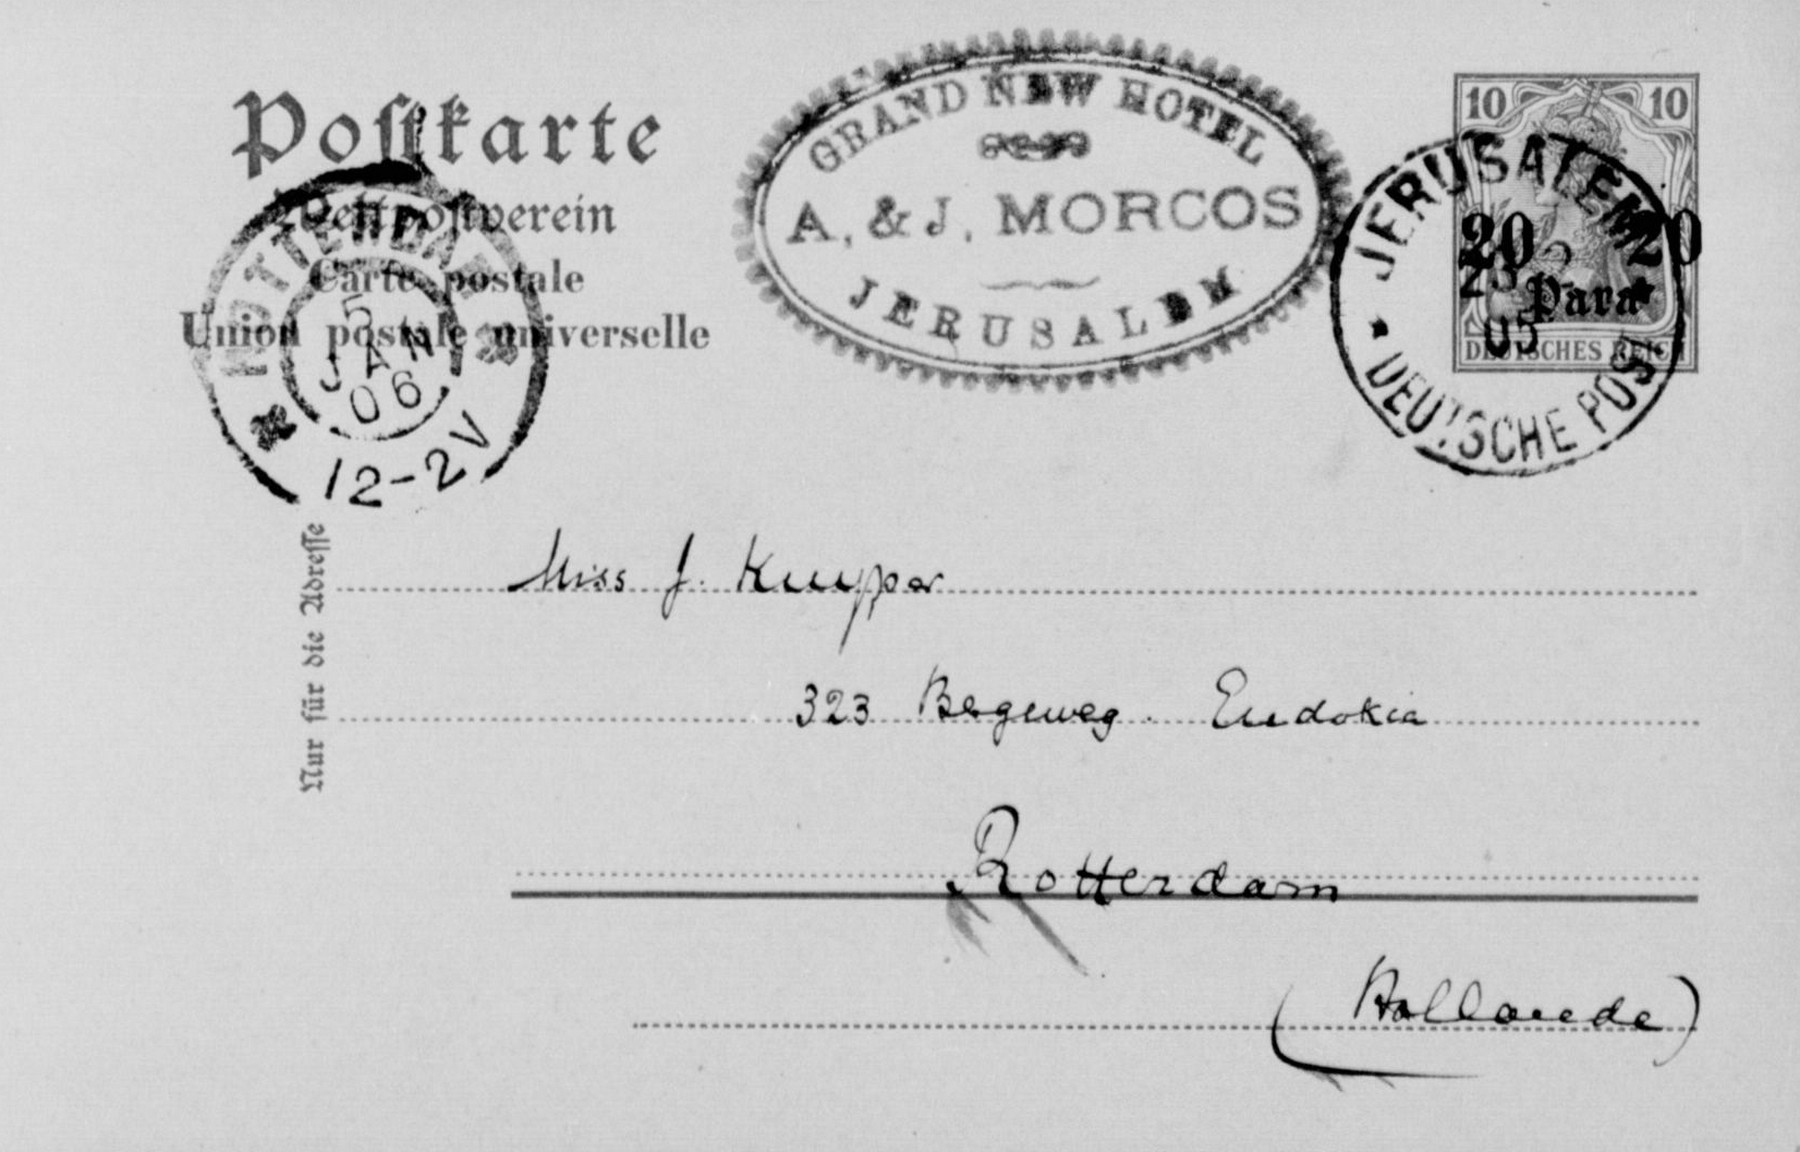 Postkarte
Weltpostverein
Carte postale
Union postale universelle
ROTTERDAM
5
JAN
06
12-2V
GRAND NEW HOTEL
A. & J. MORCOS
JERUSALEM
10 10
20 20
Para
DEUTSCHES REICH
JERUSALEM
23
05
DEUTSCHE POST
Nur für die Adresse
Miss J. Kuyper
323 Bergeweg. Eudokia
Rotterdam
(Hollande)